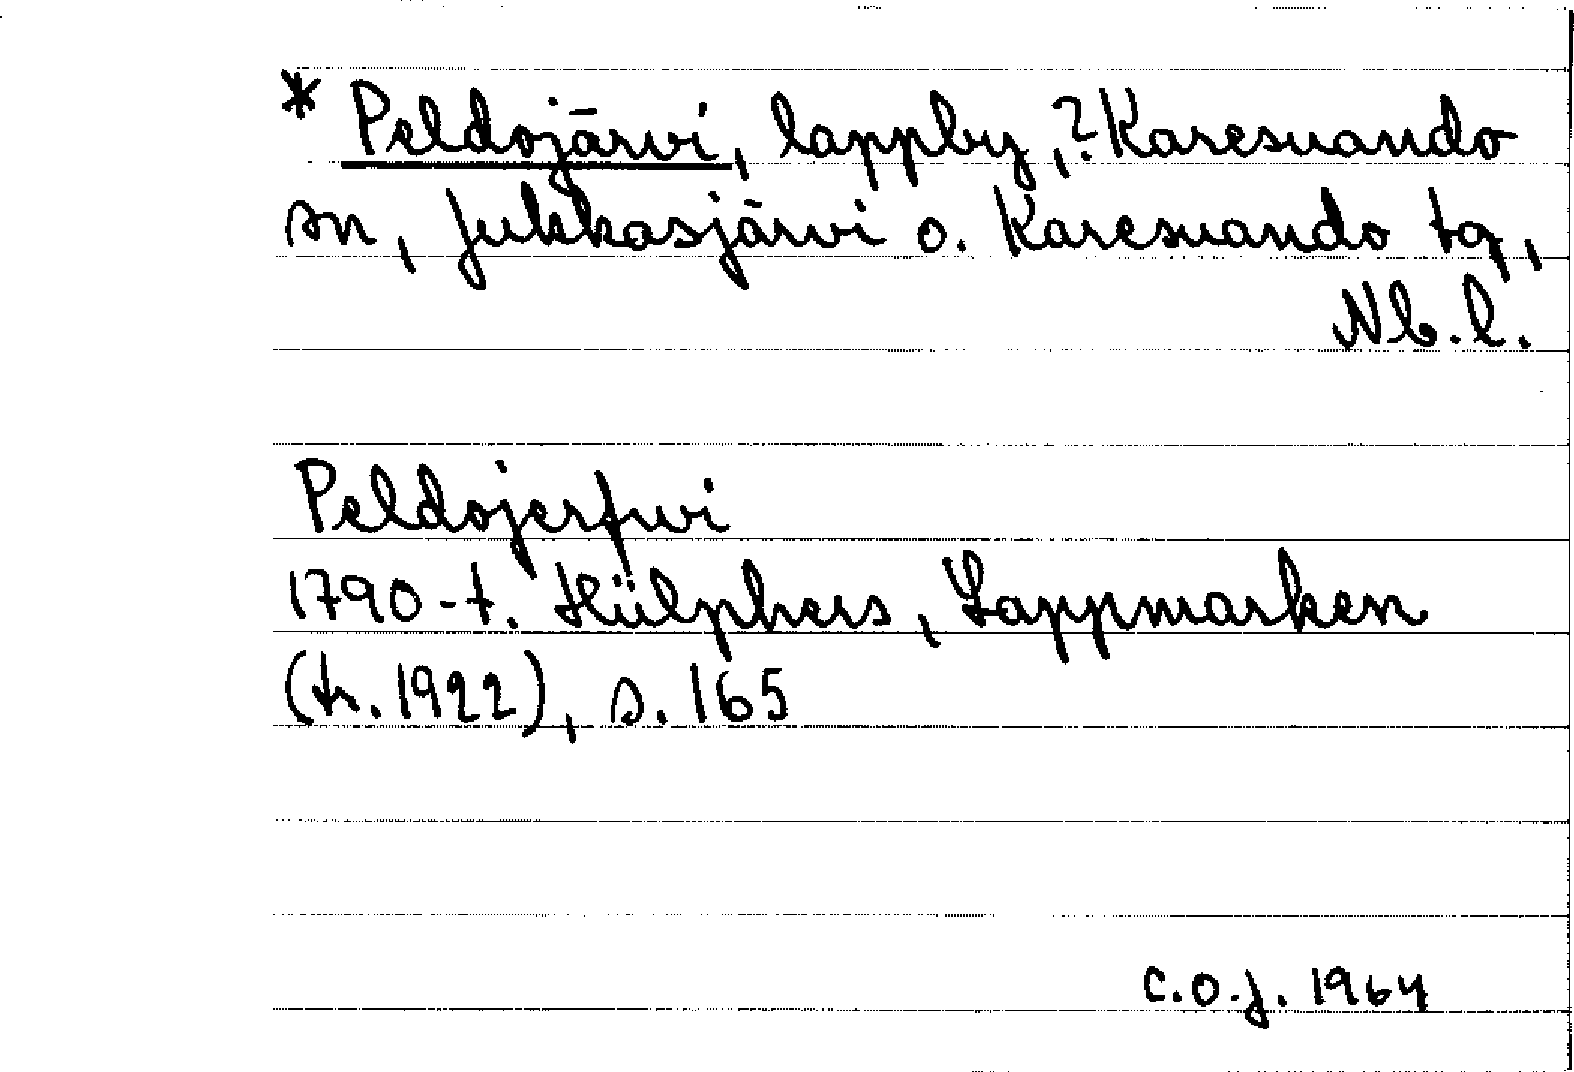 * Peldojärvi, lappby, ? Karesuando
sn, Jukkasjärvi o. Karesuando tg,
Nb.l.
Peldojerfwi
1790-t. Hülphers, Lappmarken
(tr. 1922), s. 165
C.O.J. 1964